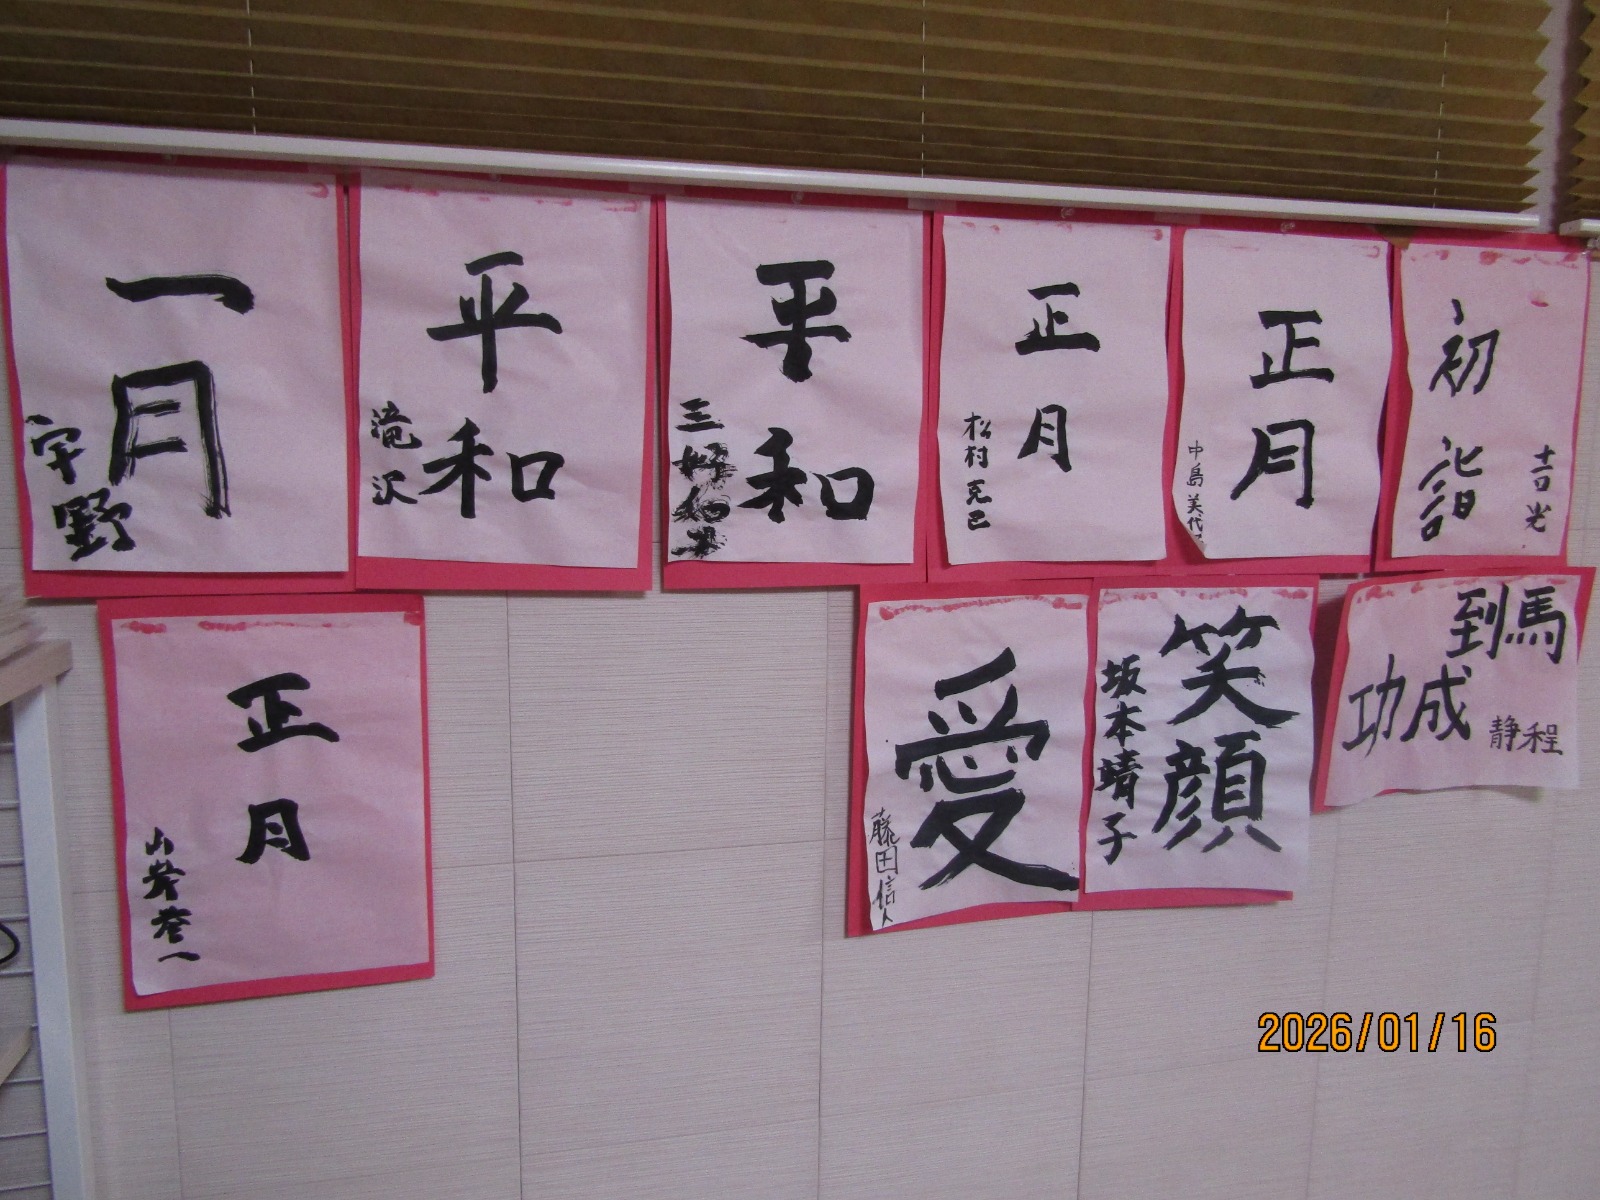 一月
宇野
平和
滝沢
平和
三好
正月
松村克己
正月
中島美代
初詣
吉光
正月
山岸
愛
藤田信人
笑顔
坂本靖子
馬到
成功
程静
2026/01/16